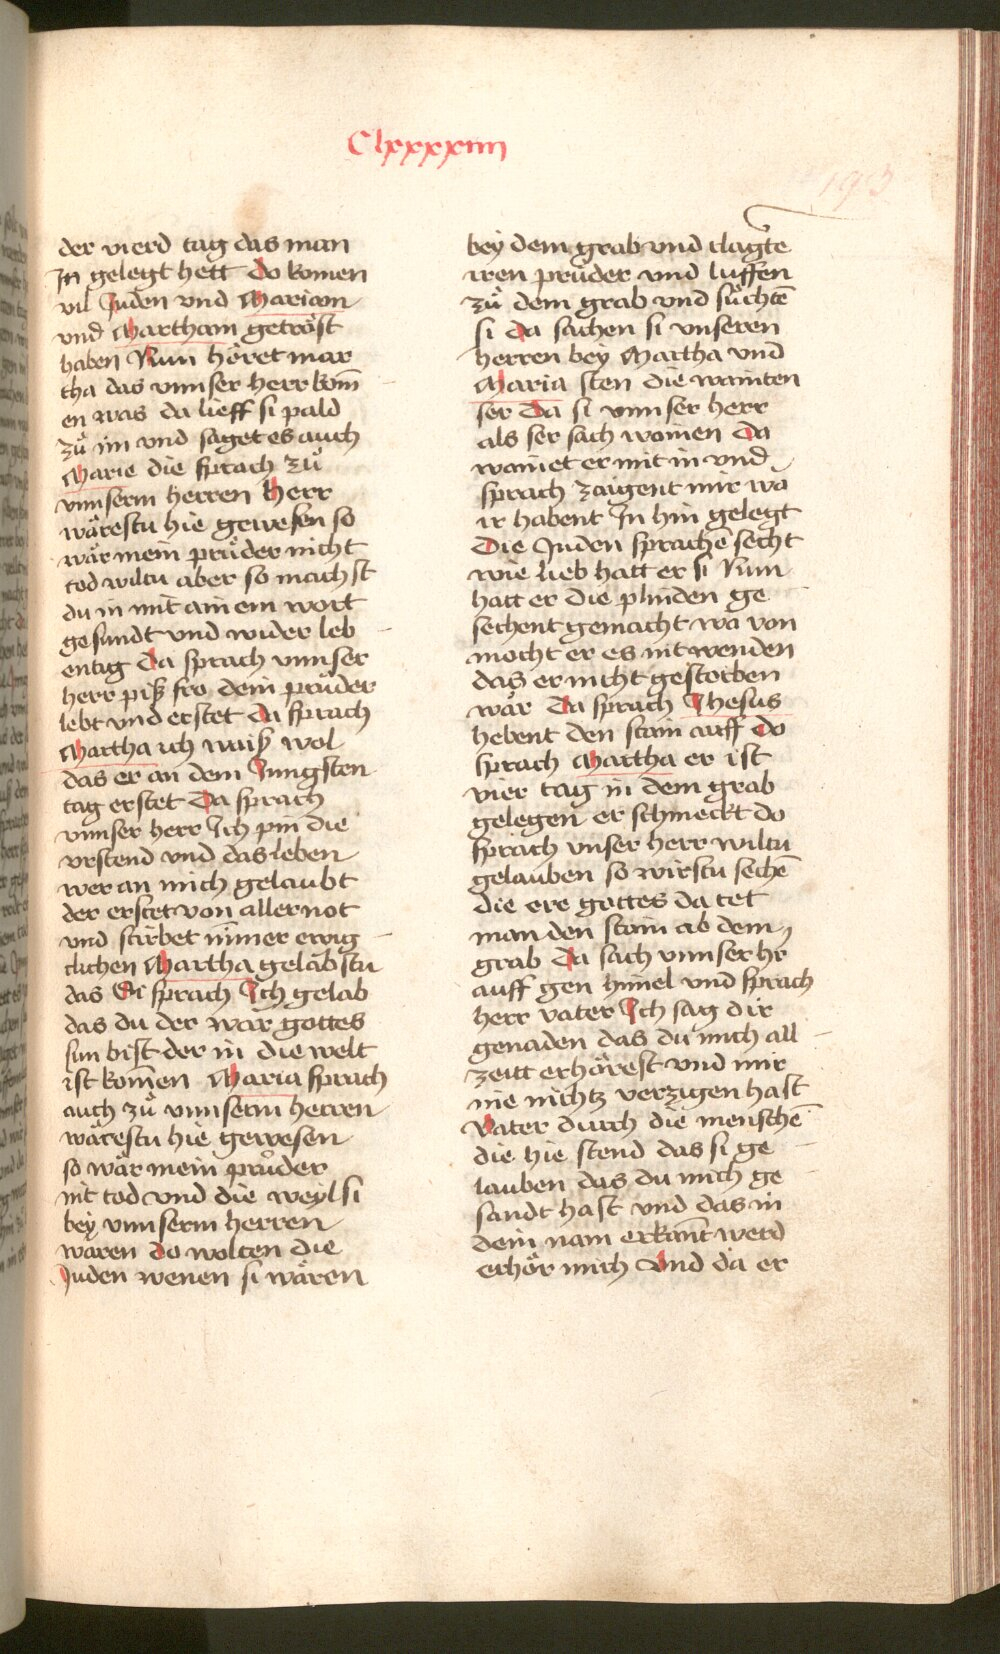 Clxxxxiiii
193
der vierd tag das man
In gelegt hett do komen
vil Juden vnd Mariam
und Martham geträst
haben Nun höret mar
tha das vnnser herr kom̄
en was da lieff si pald
zů im vnd saget es auch
Marie die sprach zů
vnnserm herren Herr
wärestu hie gewesen so
wär mein průder nicht
tod wiltu aber so machst
du in mit ainem wort
gesundt vnd wider leb
entig Da sprach vnnser
herr piß fro dein prüder
lebt vnd erstet Da sprach
Martha ich waiß wol
das er an dem Jungsten
tag erstet Da sprach
vnnser herr Ich pin die
vrstend vnd das leben
wer an mich gelaubt
der erstet von aller not
vnd stirbet nȳmer ewig
clichen Martha gelabstu
das Si sprach Ich gelab
das du der war gottes
sun bist der in die welt
ist kom̄en Maria sprach
auch zů vnnserm herren
wärestu hie gewesen
so wär mein průder
nit tod vnd die weyl si
bey vnnserm herren
waren do wolten die
Juden wenen si wären
bey dem grab vnd clagte
iren prüder vnd luffen
zů dem grab vnd sůchtē
si da sachen si vnseren
herren bey Martha vnd
Maria sten die wainten
ser Da si vnnser herr
als ser sach wainen Da
wainet er mit in vnd
sprach zaigent mir wa
ir habent In hin gelegt
Die Juden sprachē secht
wie lieb hatt er si Nun
hatt er die plinden ge
sechent gemacht wa von
mocht er es nit wenden
das er nicht gestorben
wär Da sprach Jhesus
hebent den stain auff Do
sprach Martha er ist
vier tag in dem grab
gelegen er schmeckt do
sprach vnser herr wiltu
gelauben so wirstu sechē
die ere gottes da tet
man den stain ab dem
grab Da sach vnnser hr
auff gen himel vnd sprach
herr vater Ich sag dir
genaden das du mich all
zeitt erhörest vnd mir
nie nichtz verzigen hast
Vater durch die menschē
die hie stend das si ge
lauben das du mich ge
sandt hast vnd das in
dein nam erkant werd
erhör mich Vnd da er